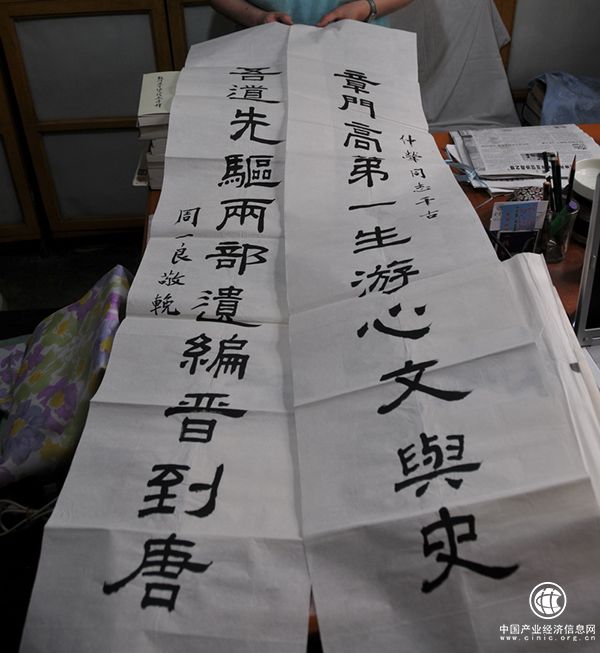 章門高弟一生游心文與史
仲犖同志千古
吾道先驅兩部遺編晋到唐
周一良敬輓
中国产业经济信息网
www.cinic.org.cn